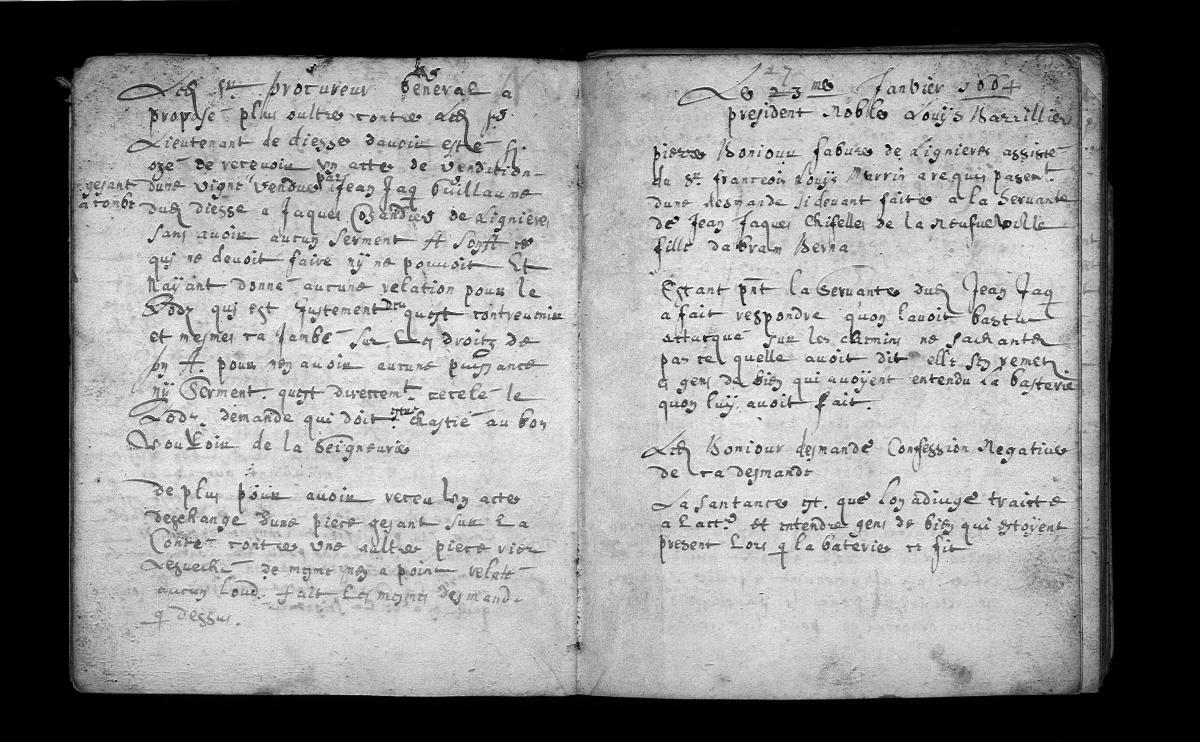 Led. Sr. Procureur General a
propose plus oultre contre led. Sr.
Lieutenant de diesse davoir esté sy
ozé de recevoir un acte de vendition
gesant
a combe
dune vigne vendue par Jean Jaq Guillaume
dud. diesse a Jaques Cosandier de Lignieres
sans avoir aucun serment A son A ce
qui ne devoit faire ny ne pouvoit Et
Nayant donné aucune relation pour le
Lodz qui est Justement deu quest contrevenir
et mesmes ca Jambé sur les droitz de
son A. pour nen avoir aucune puissance
ny Serment. quest directemt. recelé le
Lodz. demande qui doit estre chastié au bon
Vouloir de la Seigneurie
De plus pour avoir receu un acte
deschange dune piece gesant sur La
Conté contre une aultre piece rier
Levesché de mesme nen a point relaté
aucun Loud. fait Les mesmes desmande
q dessus.
27
Le 23me Janvier 1664
president Noble Louys Barrillier
pierre Bonjour fabvre de Lignieres assisté
du Sr. francois Louys Marrin a requis pasemt.
dune desmande si devant faite a la Servante
de Jean Jaques Chifelles de la Neufveville
fille dabram Berna
Estant pnt la Servante dud. Jean Jaq
a fait respondre quon lavoit bastue
attacqué sur les chemins ne sachante
pas ce quelle avoit dit elle sen remet
a gens de bien qui avoyent entendu La basterie
quon luy avoit fait.
Led. Bonjour desmande Confession Negative
de ca desmande
La santance est. que lon adjuge traicte
a Lactr. et entendre gens de bien qui estoyent
present Lors q la baterie ce fit